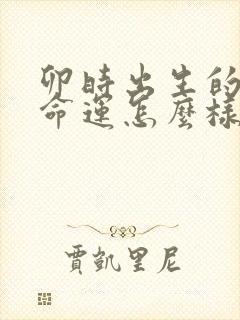 卯時出生的
命運怎麼樣
賈凱里尼